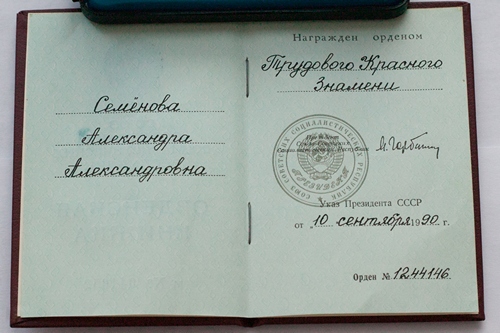 Семёнова
Александра
Александровна
Награжден орденом
Трудового Красного
Знамени
Президент
Союза Советских
Социалистических Республик
М. Горбачёв
СОЮЗ СОВЕТСКИХ СОЦИАЛИСТИЧЕСКИХ РЕСПУБЛИК
ПРЕЗИДЕНТ
Указ Президента СССР
от „10 сентября 1990 г.
Орден № 1244146